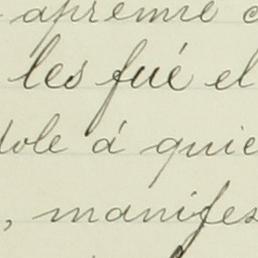 apremie c
les fué el
dole á quie
, manifes